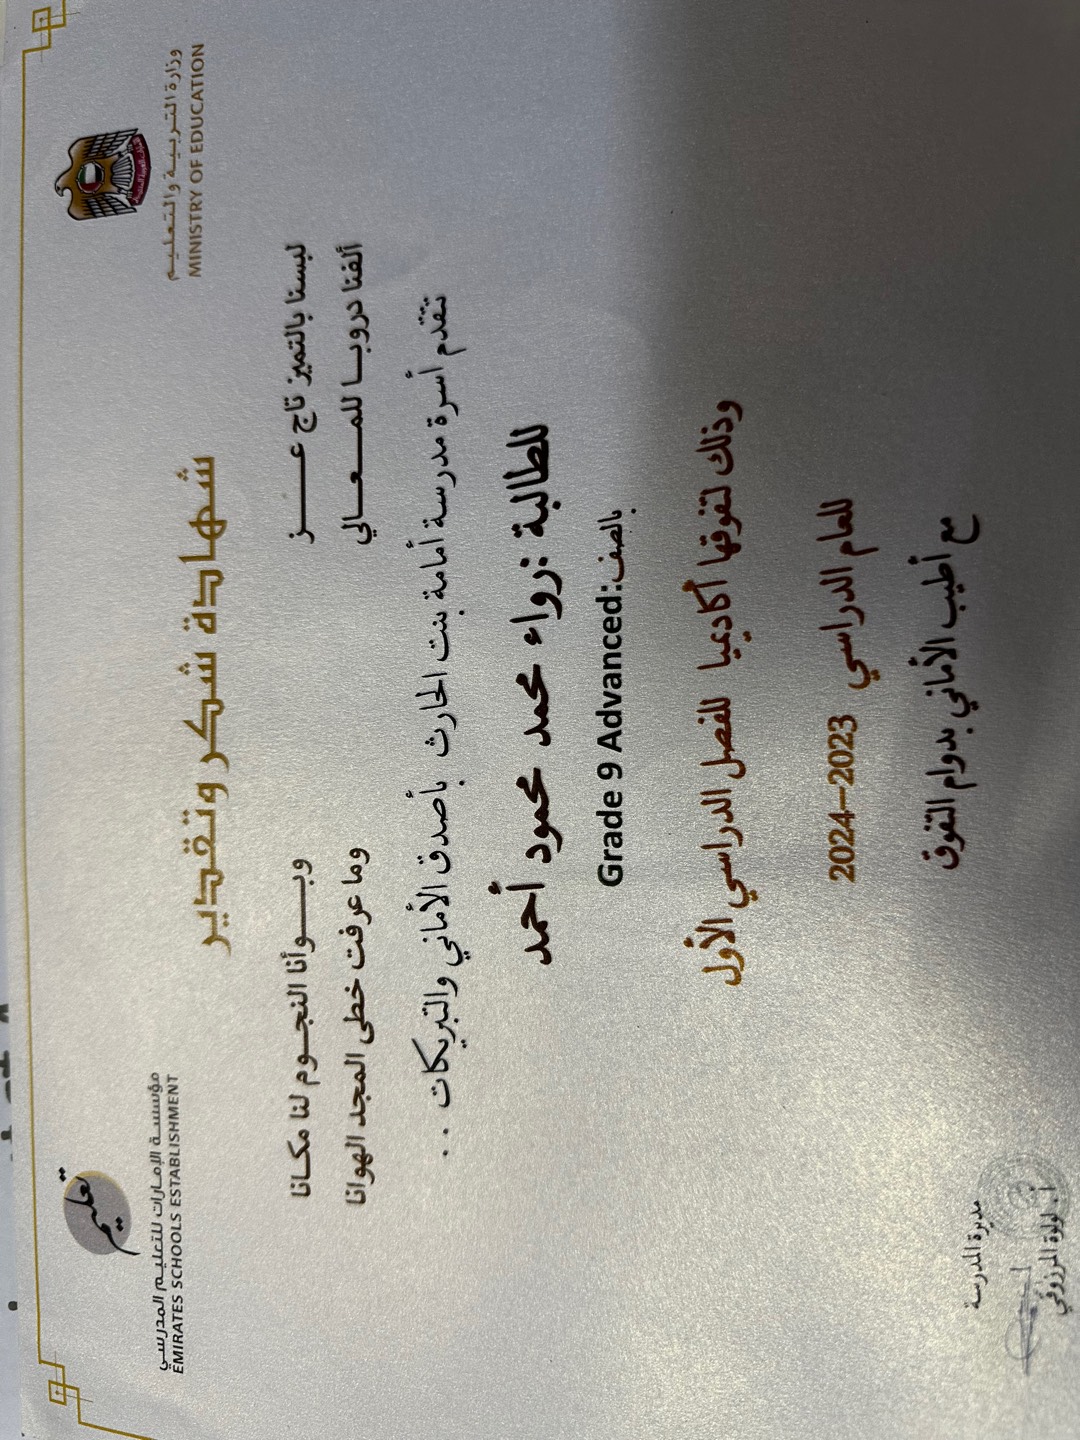 وزارة التربية والتعليم
MINISTRY OF EDUCATION
تعليم
مؤسسة الإمارات للتعليم المدرسي
EMIRATES SCHOOLS ESTABLISHMENT
شهادة شكر وتقدير
لبسنا بالتميز تاج عــــــز وبــــوأنا النجــوم لنا مكــانا
ألفنا دروبــا للمــــعــــالي وما عرفت خطى المجد الهوانا
تتقدم أسرة مدرسة أمامة بنت الحارث بأصدق الأماني والتبريكات ..
للطالبة :رواء محمد محمود أحمد
بالصف:Grade 9 Advanced
وذلك لتفوقها أكاديميا للفصل الدراسي الأول
للعام الدراسي 2023–2024
مع أطيب الأماني بدوام التفوق
مديرة المدرسة
أ. لولوة المرزوقي